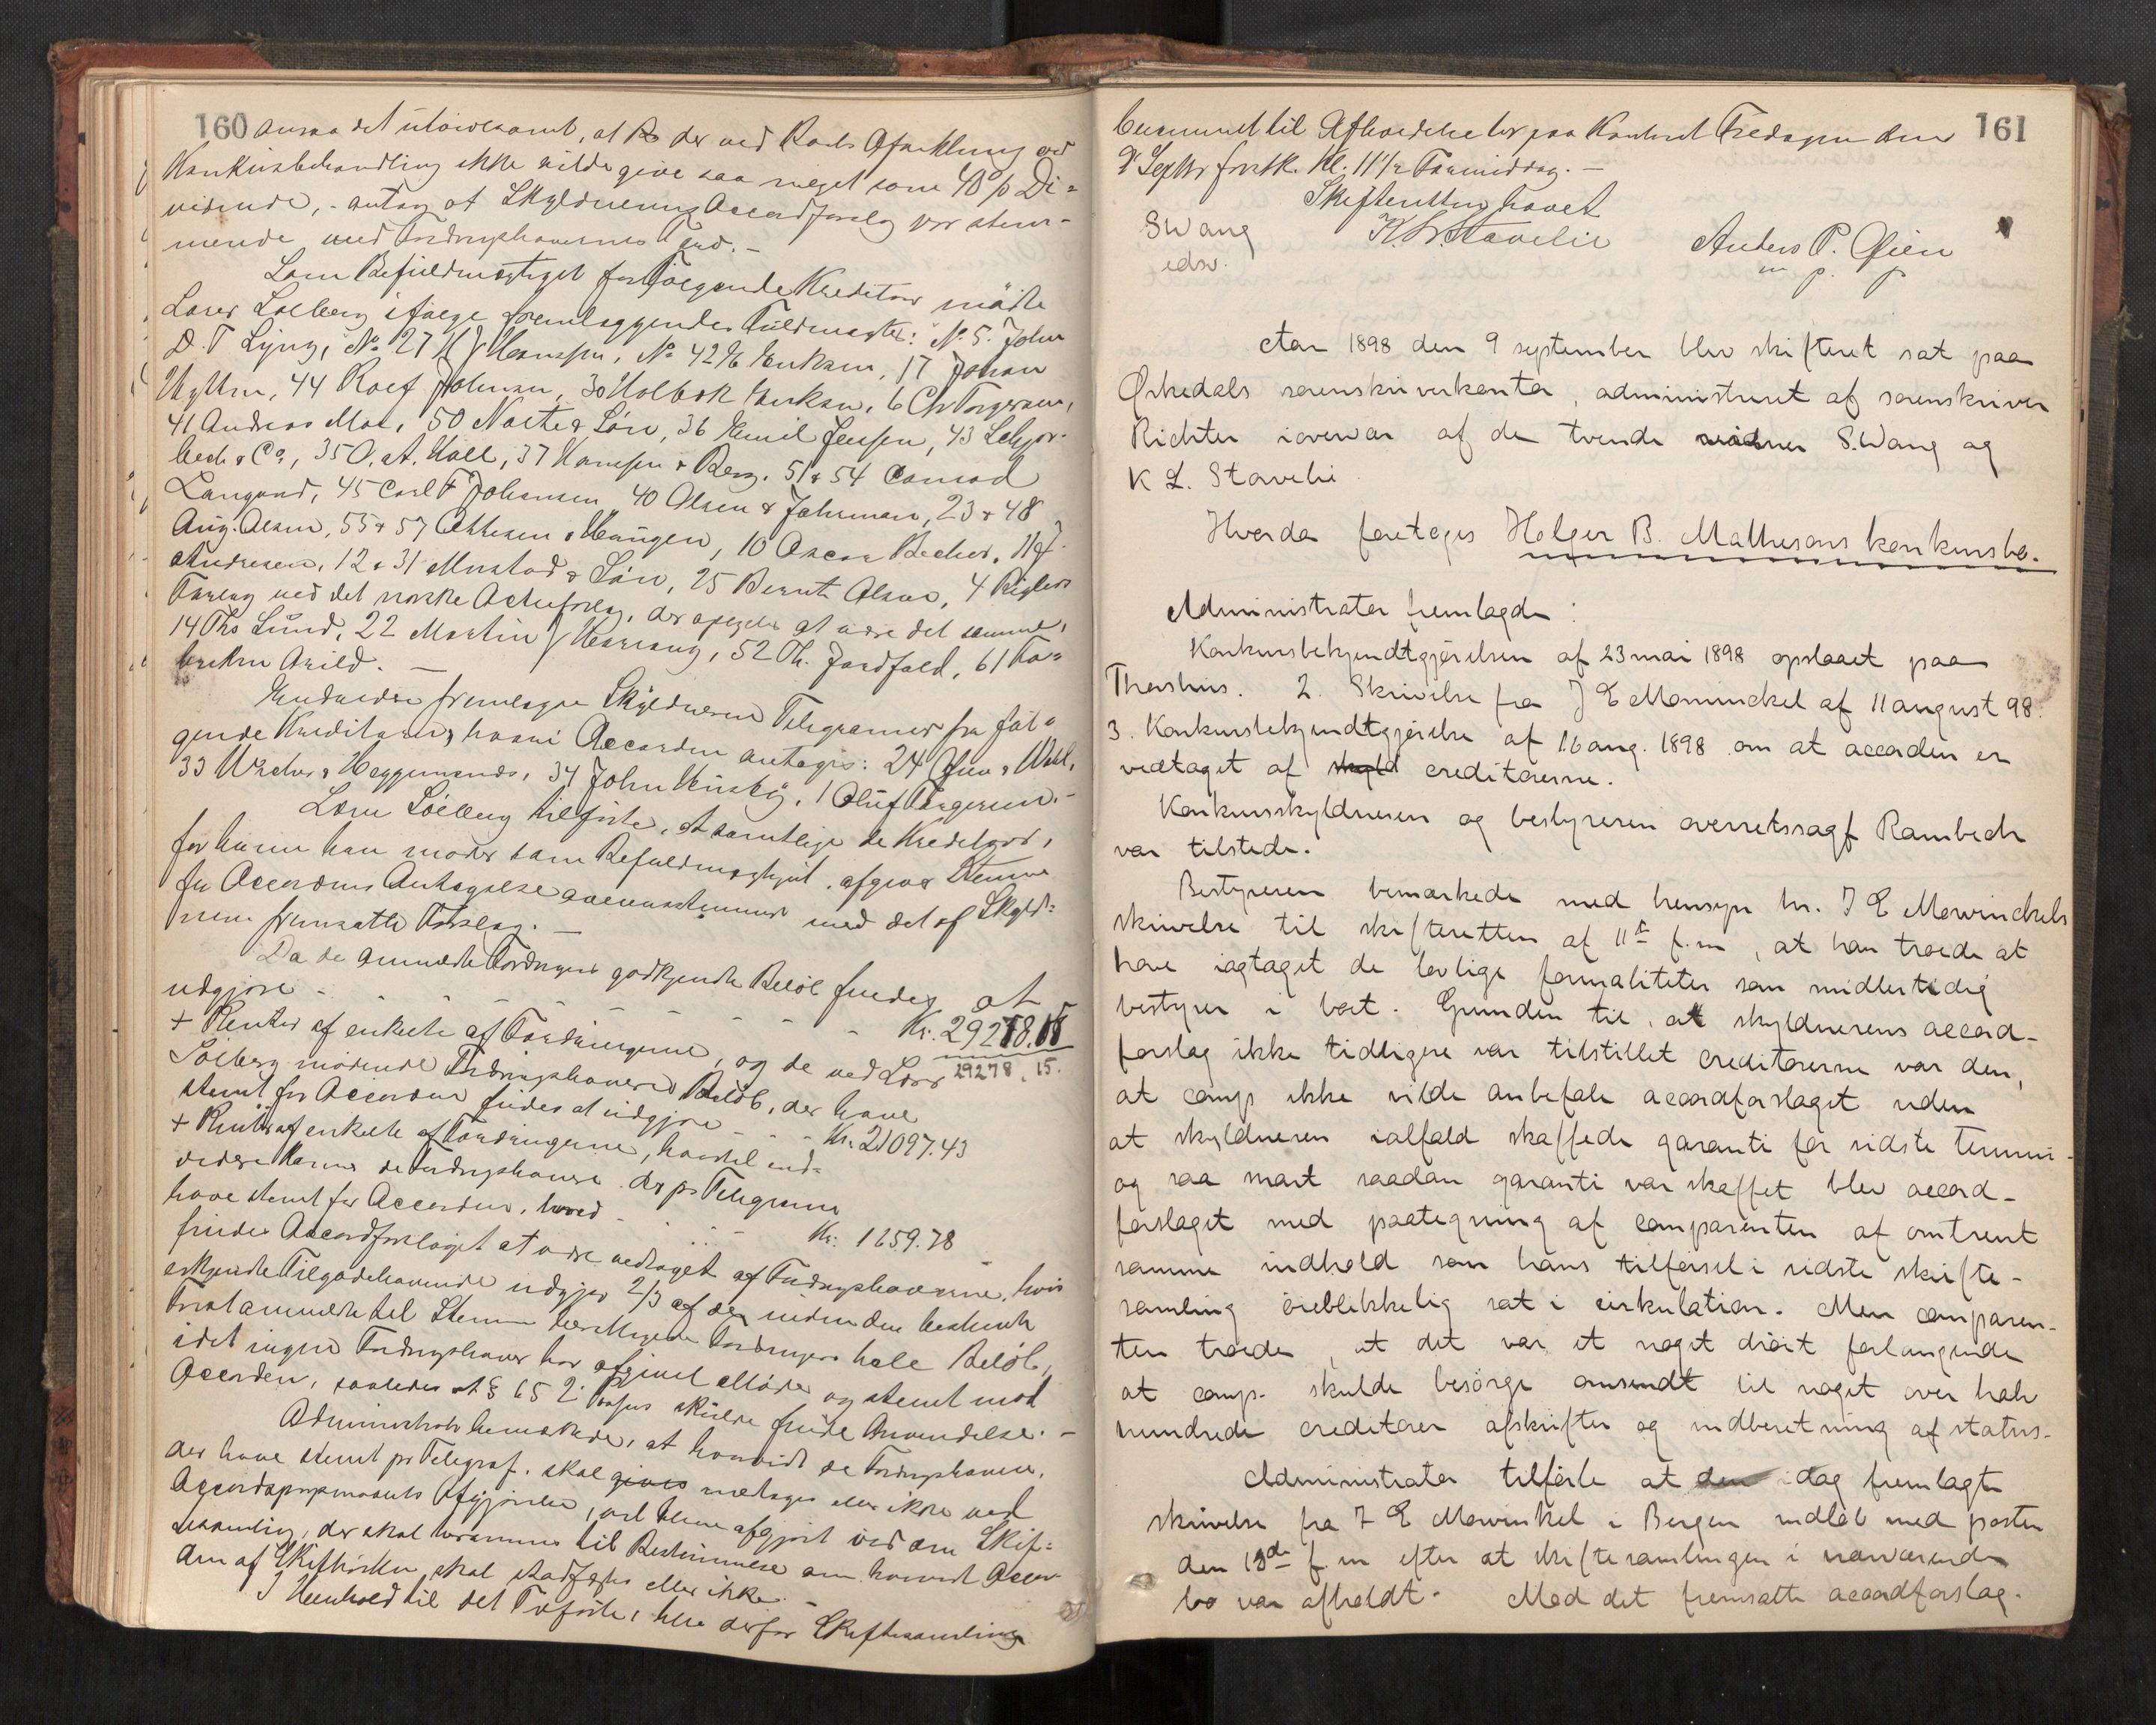 160
ansaa det utvivlsomt, at Bo der ved Boets Afvikling ved
Konkursbehandling ikke vilde give saa meget som 40% Di=
vidende, - antog at Skyldnerens Accordforslag var stem-
mende med Fordringshavernes Tarv. -
Som Befuldmægtiget for følgende Kreditorer mødte
Lars Solberg ifølge fremlæggende Fuldmagter: No 5. John
D. T Lyng, No 27 H J Hansen, No 42 E Eriksen, 17 Johan
44 Rolf Johnsen, 30 Holbæk Eriksen, 6 Chr Torgersen,
41 Andreas Moe, 50 & Søn, 36 Emil Jensen, 43
bech & Co, 35 O. A. Moll, 37 Hansen & Berg, 51 & 54 Conrad
Langaard, 45 Carl F Johansen, 40 Olsen & Johnsen, 23 & 48
Aug. Olsen, 55 & 57 Ottesen & Haugen, 10 Oscar Becker, 11 J.
Andresen, 12 & 31 Mustad & Søn, 25 Bernt Olsen, 4
Forlag ved det norske Actieforlag, der opgives at være det samme,
14 Ths Lund, 22 Martin J 52 Th. Jordfald, 61 Fa=
briken Arild. -
Endvidere fremlagde Skyldneren Telegrammer fra føl=
gende Kreditorer, hvori Accorden antages: 24
33 & Heggemands, 34 John Huseby, 1 Oluf Torgersen. -
Lars Solberg tilførte, at samtlige de Kreditorer,
for hvem han møder som Befuldmægtiget, afgiver Stemme
for Accordens Antagelse overensstemmende med det af Skyld=
neren fremsatte Forslag. -
Da de anmeldte Fordringers godkjendte Beløb findes at
udgjøre - - - - - - - Kr. 29278.15
29278.15.
+ Renter af enkelte af Fordringerne, og de ved Lars
Solberg mødende Fordringshaveres Beløb, der have
stemt for Accorden findes at udgjøre - - - Kr. 21097.43
+ Renter af enkelte af Fordringerne, hvortil end=
videre kommer de Fordringshavere der pr Telegram
have stemt for Accorden, hvoraf - - - Kr. 1659.78
findes Accordforslaget at være vedtaget af Fordringshaverne, hvis
Tilgodehavende udgjør 2/3 af de inden den bestemte
Frist anmeldte til Stemme berettigede Fordringers hele Beløb,
idet ingen Fordringshaver har afgivet Møde og stemt mod
Accorden, saaledes at § 65 2. Passus skulde finde Anvendelse. -
Administrator bemærkede, at hvorvidt de Fordringshavere,
der have stemt pr Telegraf. skal gives medtages eller ikke ved
Accordspørgsmaalets Afgjørelse, vil blive afgjort ved den Skif=
tesamling, der skal berammes til Bestemmelse om hvorvidt Accor
den af Skifteretten skal stadfæstes eller ikke. -
I Henhold til det Tilførte, blev derfor Skiftesamling
161
berammet til Afholdelse her paa Kontoret Fredagen den
9' Septbr førstk. Kl: 11 1/2 Formiddag. -
Skifteretten hævet
S Wang
K. L. Stavelie
Anders P. Øien
edsv.
m p. p
Aar 1898 den 9 september blev skifteret sat paa
Orkedals sorenskriverkontor, administreret af sorenskriver
Richter i overvær af de tvende vidner S. Wang og
K L. Stavelie.
Hvorda foretoges Holger B. Mathesons konkursbo.
Administrator fremlagde:
Konkursbekjendtgjørelsen af 23 mai 1898 opslaaet paa
Thorshus. 2. Skrivelse fra J E Mowinckel af 11 august 98.
3. Konkursbekjendtgjørelse af 16 aug. 1898 om at accorden er
vedtaget af skyld creditorerne.
Konkursskyldneren og bestyreren overretssagf Rambech
var tilstede.
Bestyreren bemærkede med hensyn hr. J E Mowinckels
skrivelse til skifteretten af 11te f.m, at han troede at
have iagttaget de lovlige formaliteter som midlertidig
bestyrer i boet. Grunden til, at skyldnerens accord-
forslag ikke tidligere var tilstillet creditorerne var den,
at comp ikke vilde anbefale accordforslaget uden
at skyldneren ialfald skaffede garanti for sidste termin -
og saa snart saadan garanti var skaffet blev accord-
forslaget med paategning af comparenten af omtrent
samme indhold som hans tilførsel i sidste skifte-
samling øieblikkelig sat i cirkulation. Men comparen-
ten troede, at det var et noget drøit forlangende
at comp. skulde besørge omsendt til noget over halv
hundrede creditorer afskrifter og indberetning af status.
Administrator tilførte at den idag fremlagte
skrivelse fra J E Mowinkel i Bergen indløb med posten
den 18de f.m efter at skiftesamlingen i nærværende
bo var afholdt. Mod det fremsatte accordforslag.